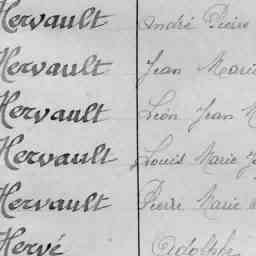 Hervault André Pierre
Hervault Jean Marie
Hervault Léon Jean M
Hervault Louis Marie J
Hervault Pierre Marie
Hervé Adolphe